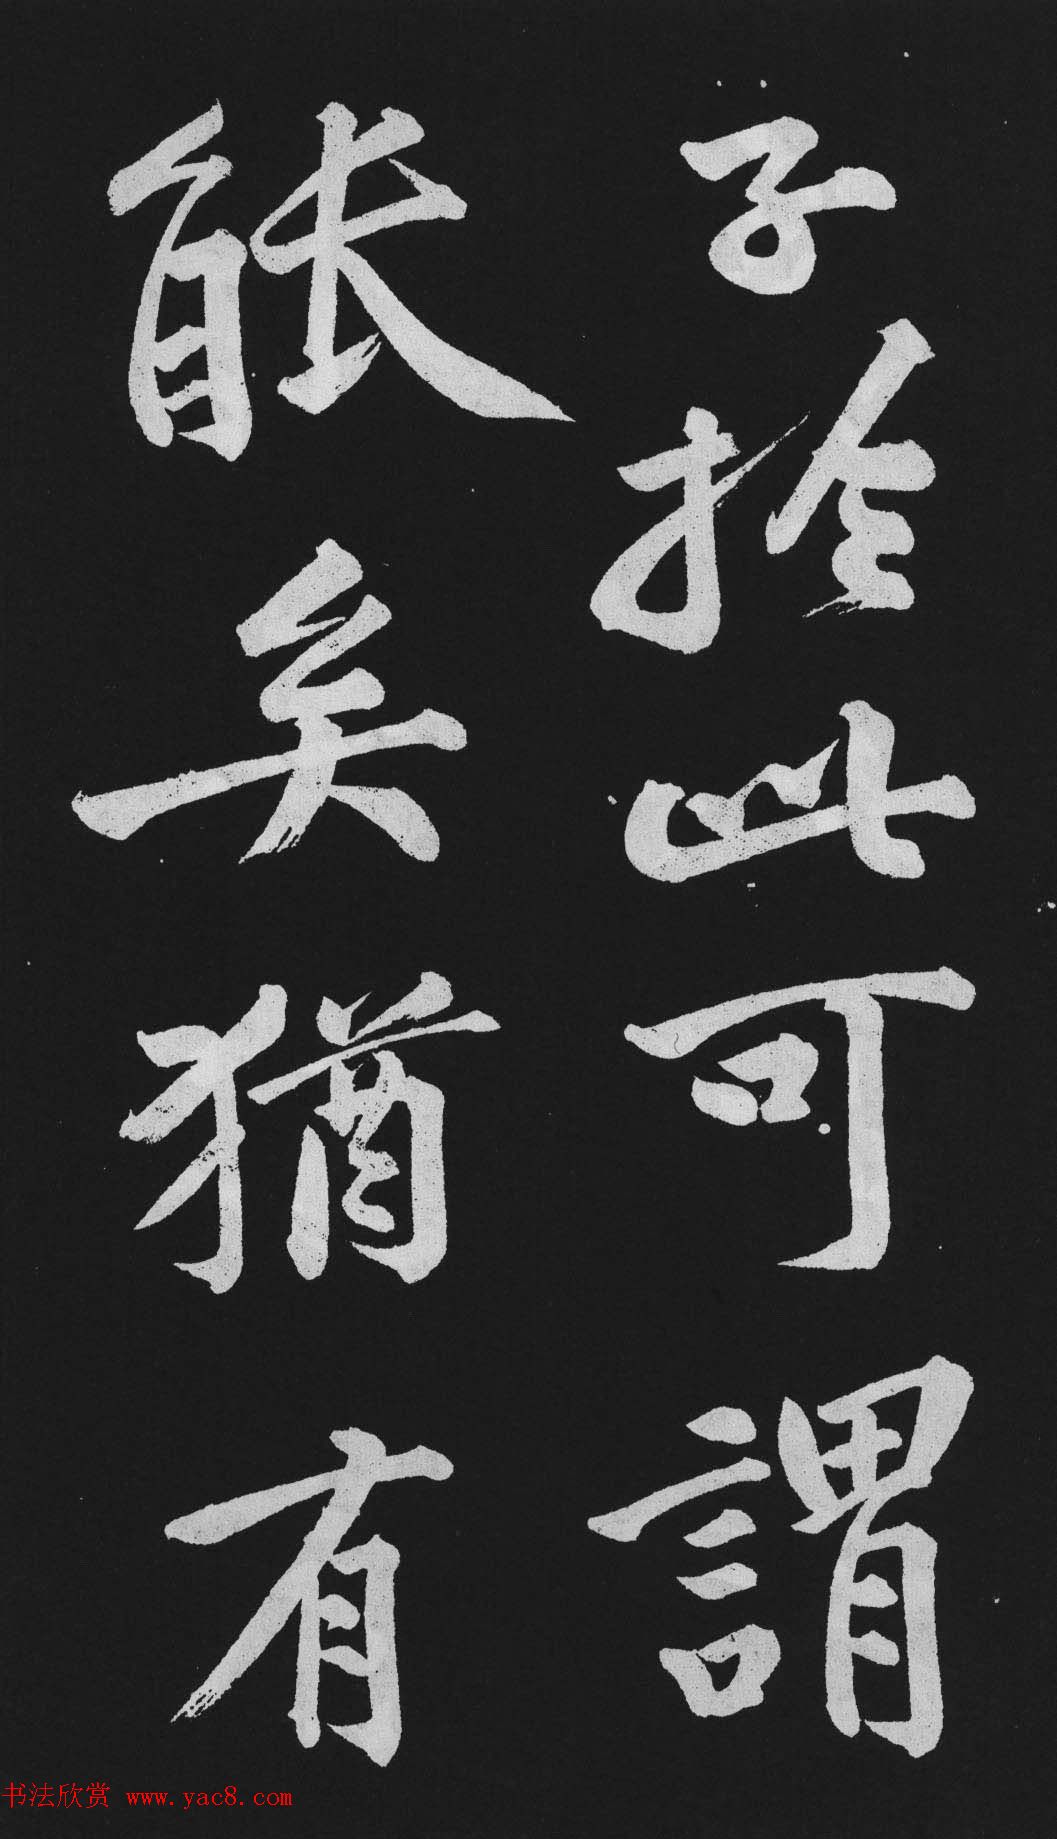 子於此可謂
能矣猶有
书法欣赏 www.yac8.com